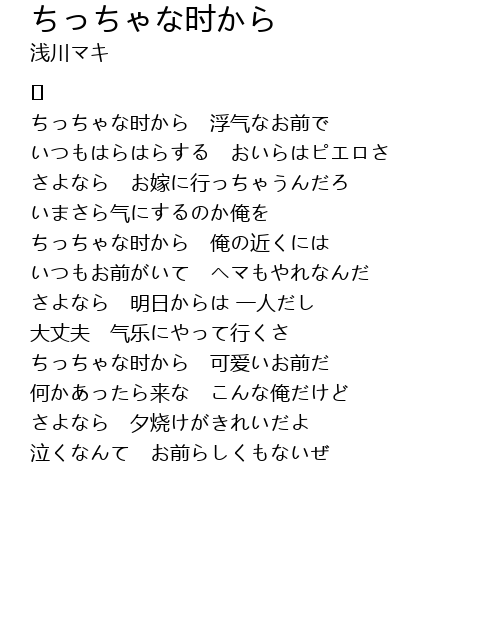 ちっちゃな时から
浅川マキ
ちっちゃな时から　浮气なお前で
いつもはらはらする　おいらはピエロさ
さよなら　お嫁に行っちゃうんだろ
いまさら气にするのか俺を
ちっちゃな时から　俺の近くには
いつもお前がいて　ヘマもやれなんだ
さよなら　明日からは 一人だし
大丈夫　气乐にやって行くさ
ちっちゃな时から　可爱いお前だ
何かあったら来な　こんな俺だけど
さよなら　夕烧けがきれいだよ
泣くなんて　お前らしくもないぜ